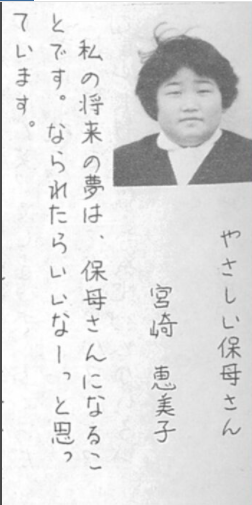 やさしい保母さん
宮崎　恵美子
私の将来の夢は、保母さんになるこ
とです。なられたらいいなーっと思っ
ています。